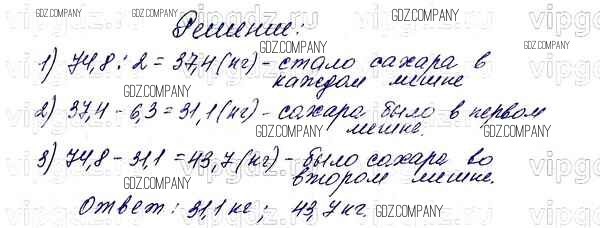 Решение:
1) 74,8 : 2 = 37,4 (кг) - стало сахара в
каждом мешке
2) 37,4 - 6,3 = 31,1 (кг) - сахара было в первом
мешке.
3) 74,8 - 31,1 = 43,7 (кг) - было сахара во
втором мешке.
Ответ: 31,1 кг; 43,7 кг.
GDZ.COMPANY
GDZ.COMPANY
GDZ.COMPANY
GDZ.COMPANY
GDZ.COMPANY
GDZ.COMPANY
GDZ.COMPANY
GDZ.COMPANY
GDZ.COMPANY
GDZ.COMPANY
vipgdz.ru